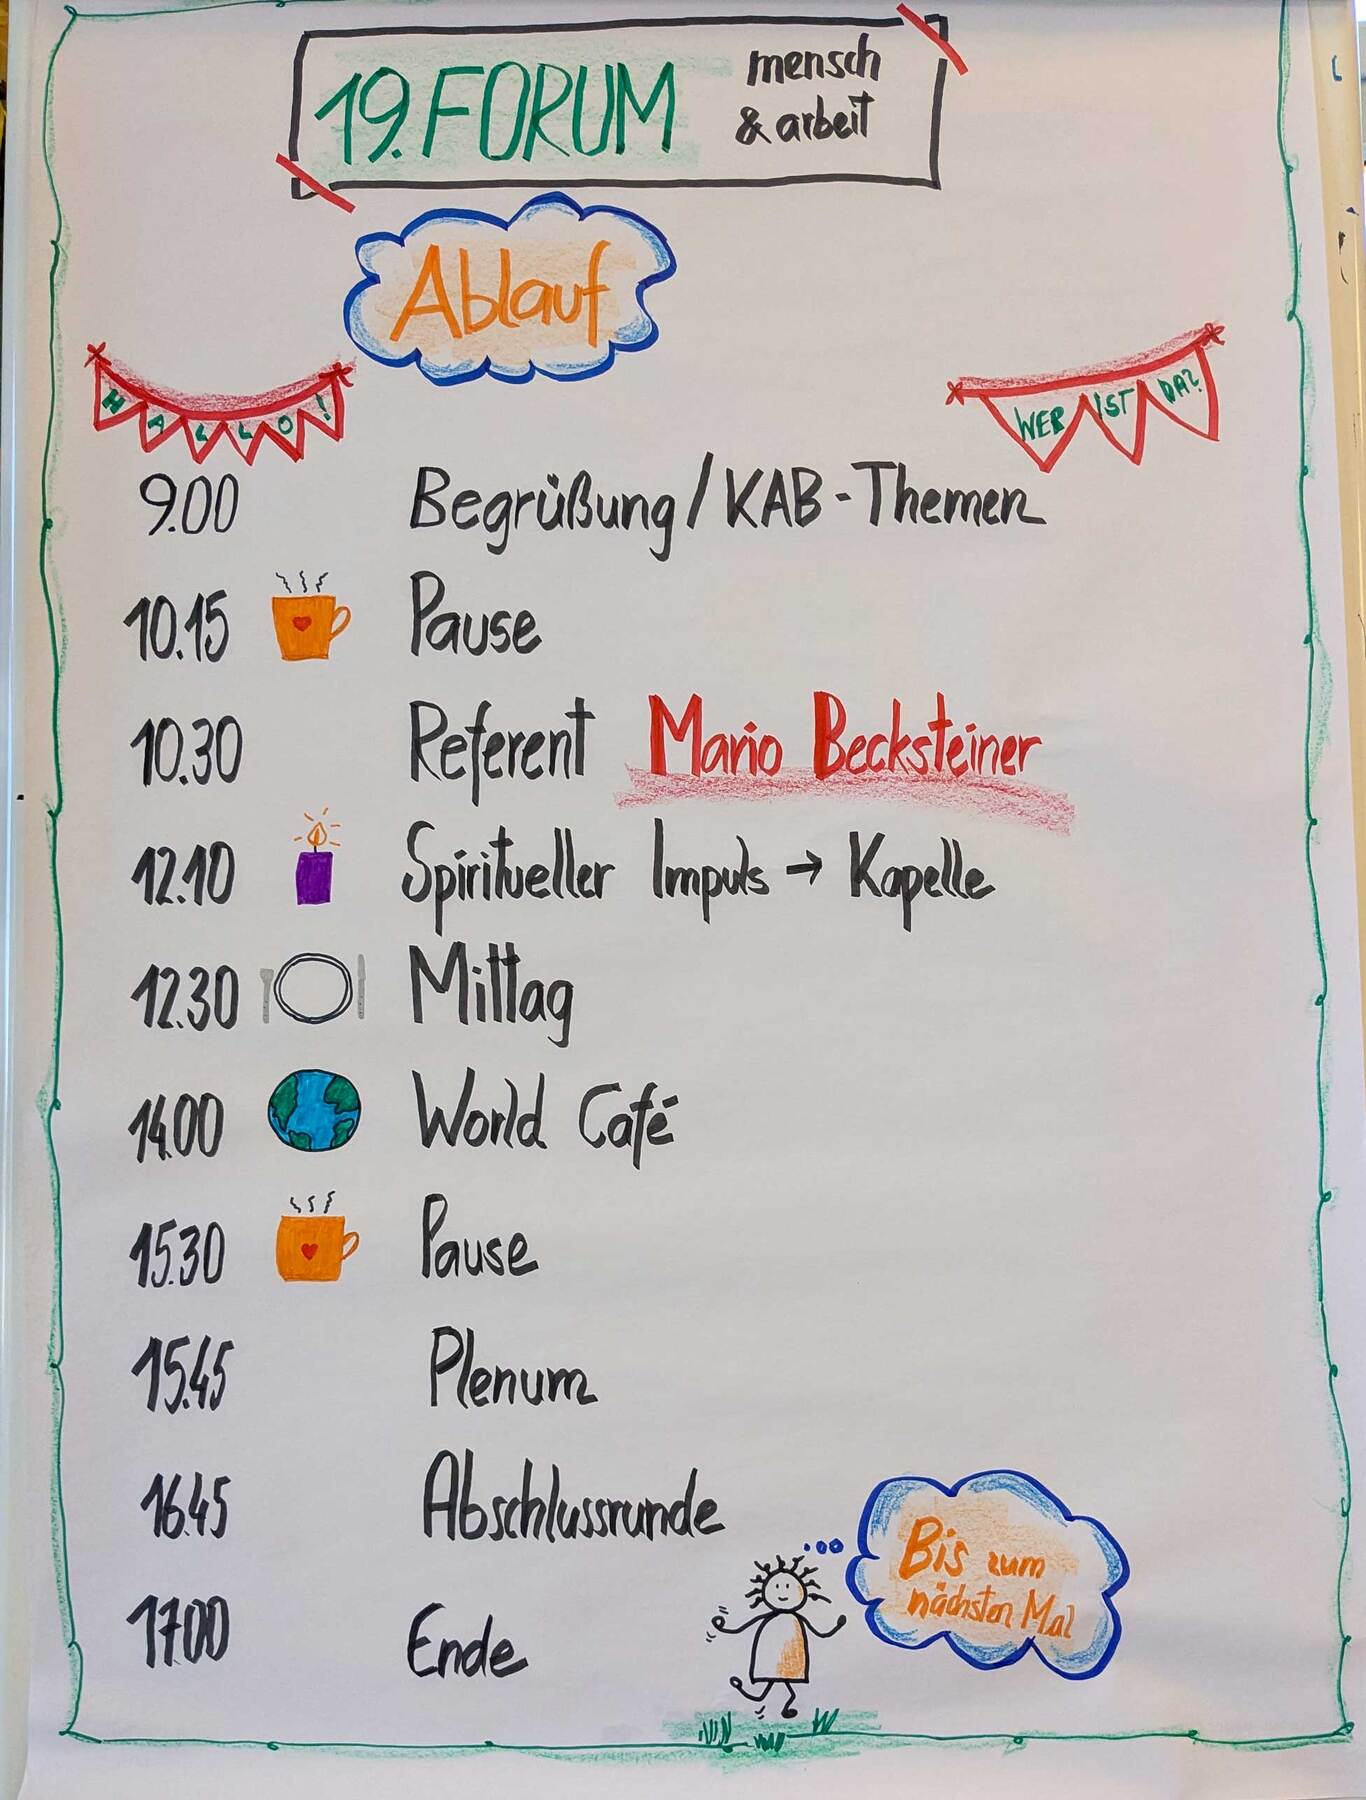 19. FORUM mensch
& arbeit
Ablauf
HALLO!
WER IST DA?
9.00 Begrüßung / KAB - Themen
10.15 Pause
10.30 Referent Mario Becksteiner
12.10 Spiritueller Impuls → Kapelle
12.30 Mittag
14.00 World Café
15.30 Pause
15.45 Plenum
16.45 Abschlussrunde
17.00 Ende
Bis zum
nächsten Mal